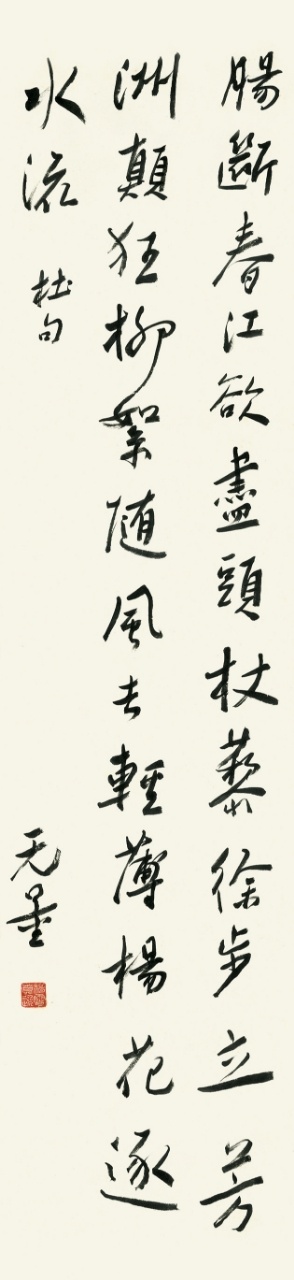 腸斷春江欲盡頭杖藜徐步立芳
洲顛狂柳絮随風去輕薄楊花逐
水流 杜句
无量